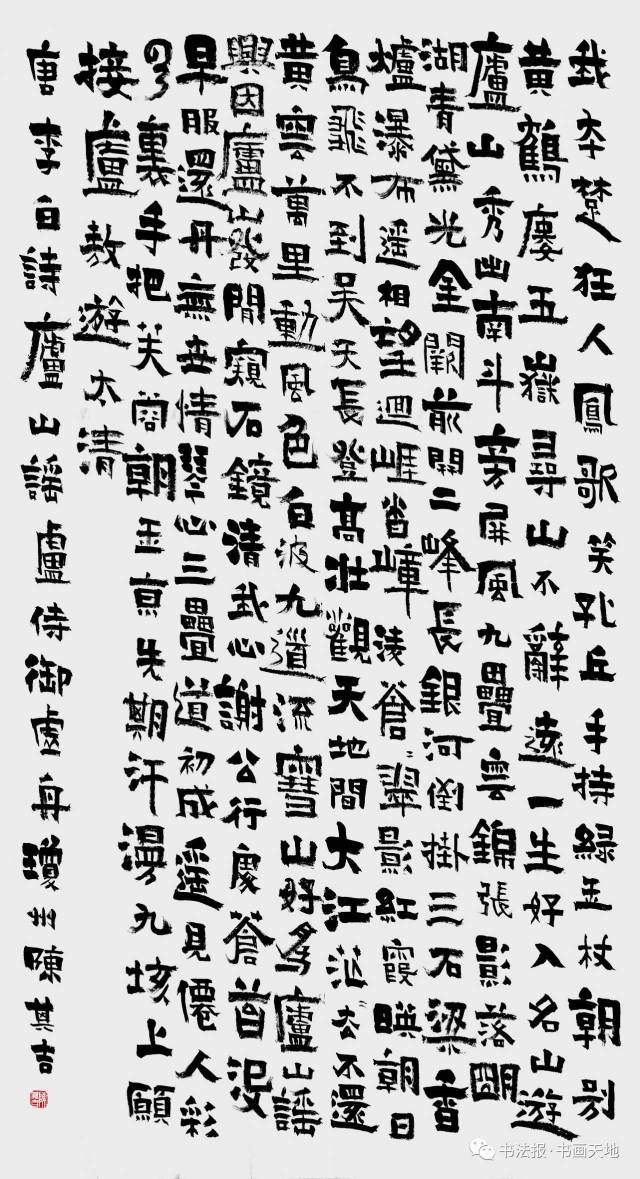 我本楚狂人鳳歌笑孔丘手持綠玉杖朝別
黃鶴廔五嶽尋山不辭遠一生好入名山遊
廬山秀出南斗旁屏風九疊雲錦張影落明
湖青黛光金闕前開二峰長銀河倒掛三石梁香
爐瀑布遥相望迴崕沓嶂淩蒼〻翠影紅霞暎朝日
鳥飛不到吳天長登高壯觀天地間大江茫〻去不還
黃雲萬里動風色白波九道流雪山好為廬山謠
興因廬山發閒窺石鏡清我心謝公行處蒼苔没
早服還丹無世情琴心三疊道初成遥見僊人彩
雲裏手把芙蓉朝玉京先期汗漫九垓上願
接盧敖遊太清
唐李白詩廬山謠盧侍御虛舟瓊州陳其吉
书法报·书画天地